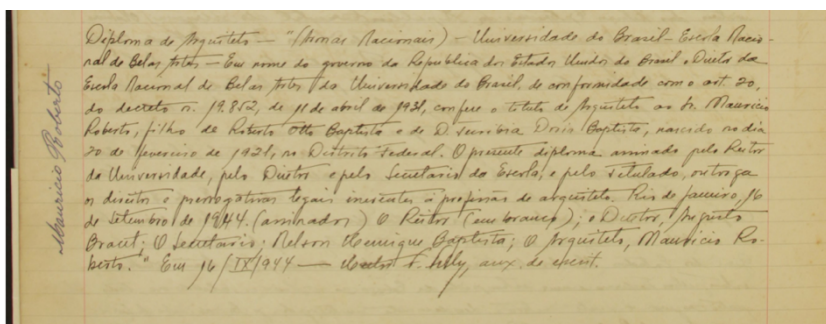 Mauricio Roberto
Diploma de Arquiteto — "(Armas Nacionais) — Universidade do Brasil - Escola Nacio-
nal de Belas Artes — Em nome do governo da Republica dos Estados Unidos do Brasil o Diretor da
Escola Nacional de Belas Artes da Universidade do Brasil, de conformidade com o art. 20,
do decreto n. 19.852, de 11 de abril de 1931, confere o titulo de Arquiteto ao Sr. Mauricio
Roberto, filho de Roberto Otto Baptista e de D. Doris Baptista, nascido no dia
20 de fevereiro de 1921, no Distrito Federal. O presente diploma assinado pelo Reitor
da Universidade, pelo Diretor e pelo Secretario da Escola, e pelo titulado, outorga
os direitos e prerrogativas legais inerentes á profissão de arquiteto. Rio de Janeiro, 16
de Setembro de 1944. (assinados) O Reitor (em branco); o Diretor, Augusto
Bracet; O Secretario: Nelson Henrique Baptista; O Arquiteto, Mauricio Ro-
berto." Em 16/IX/1944 — F. aux. de escrit.